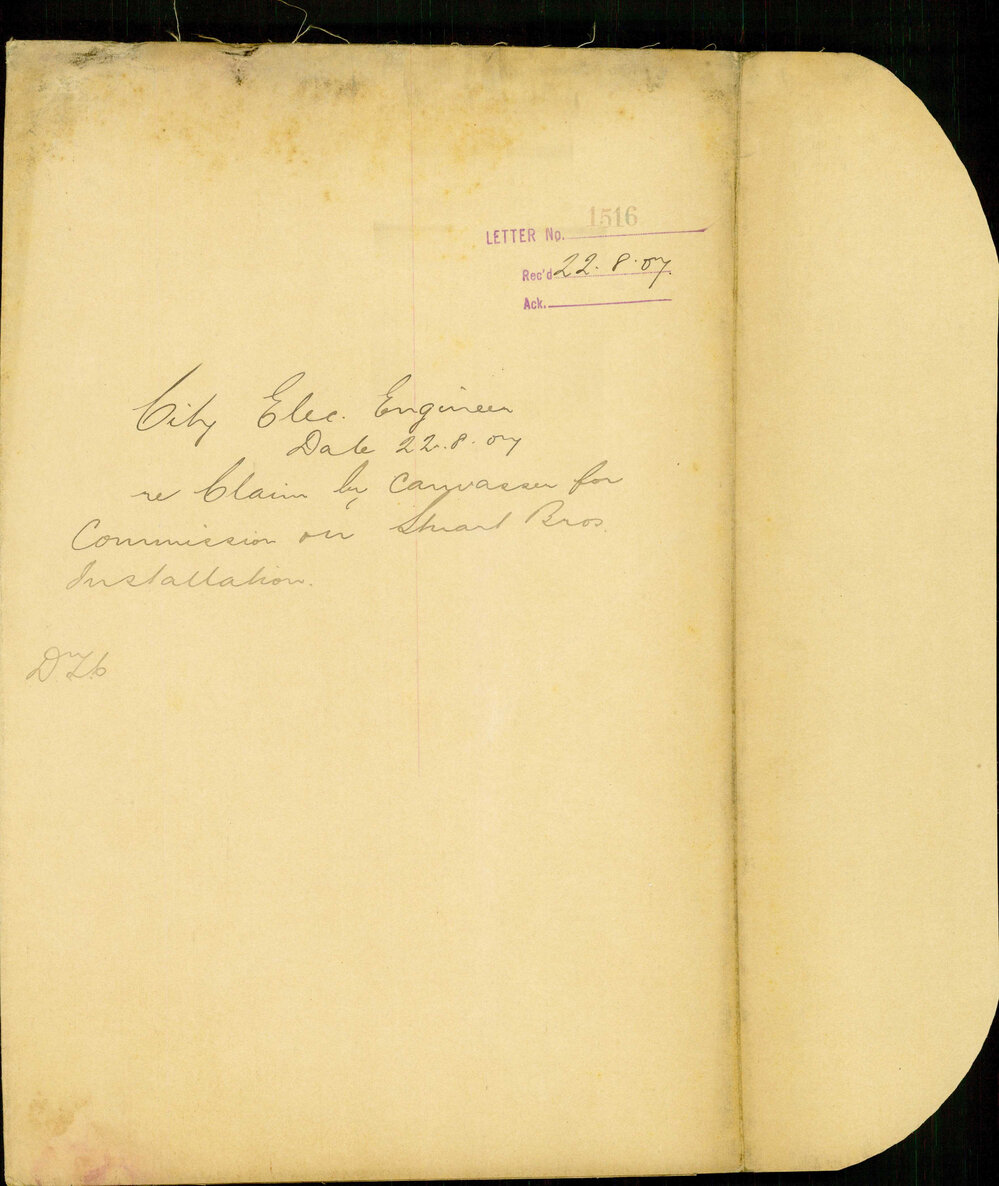 LETTER No. 1516
Rec'd 22.8.07.
Ack.
City Elec. Engineer
Date 22.8.07
re Claim by Canvasser for
Commission on Stuart Bros.
Installation.